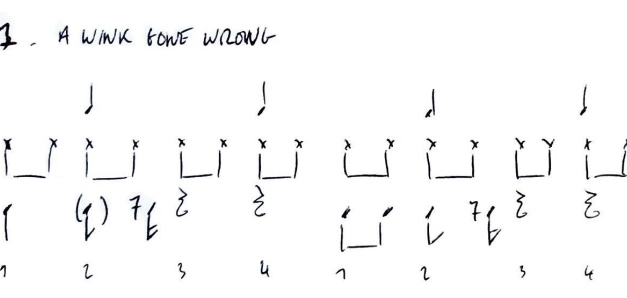 1. A WINK GONE WRONG
1 2 3 4 1 2 3 4